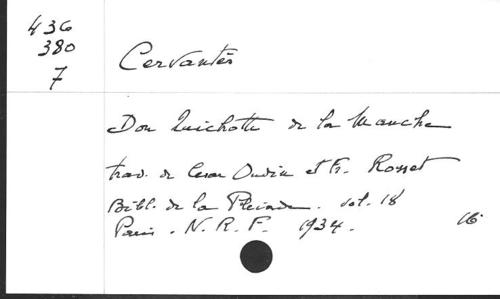 436
380
7
Cervantès
Don Quichotte de la Manche
trad. de Cesar Oudin et Fr. Rosset
Bibl. de la Pleiade. vol. 18
Paris. N. R. F. 1934. 16.